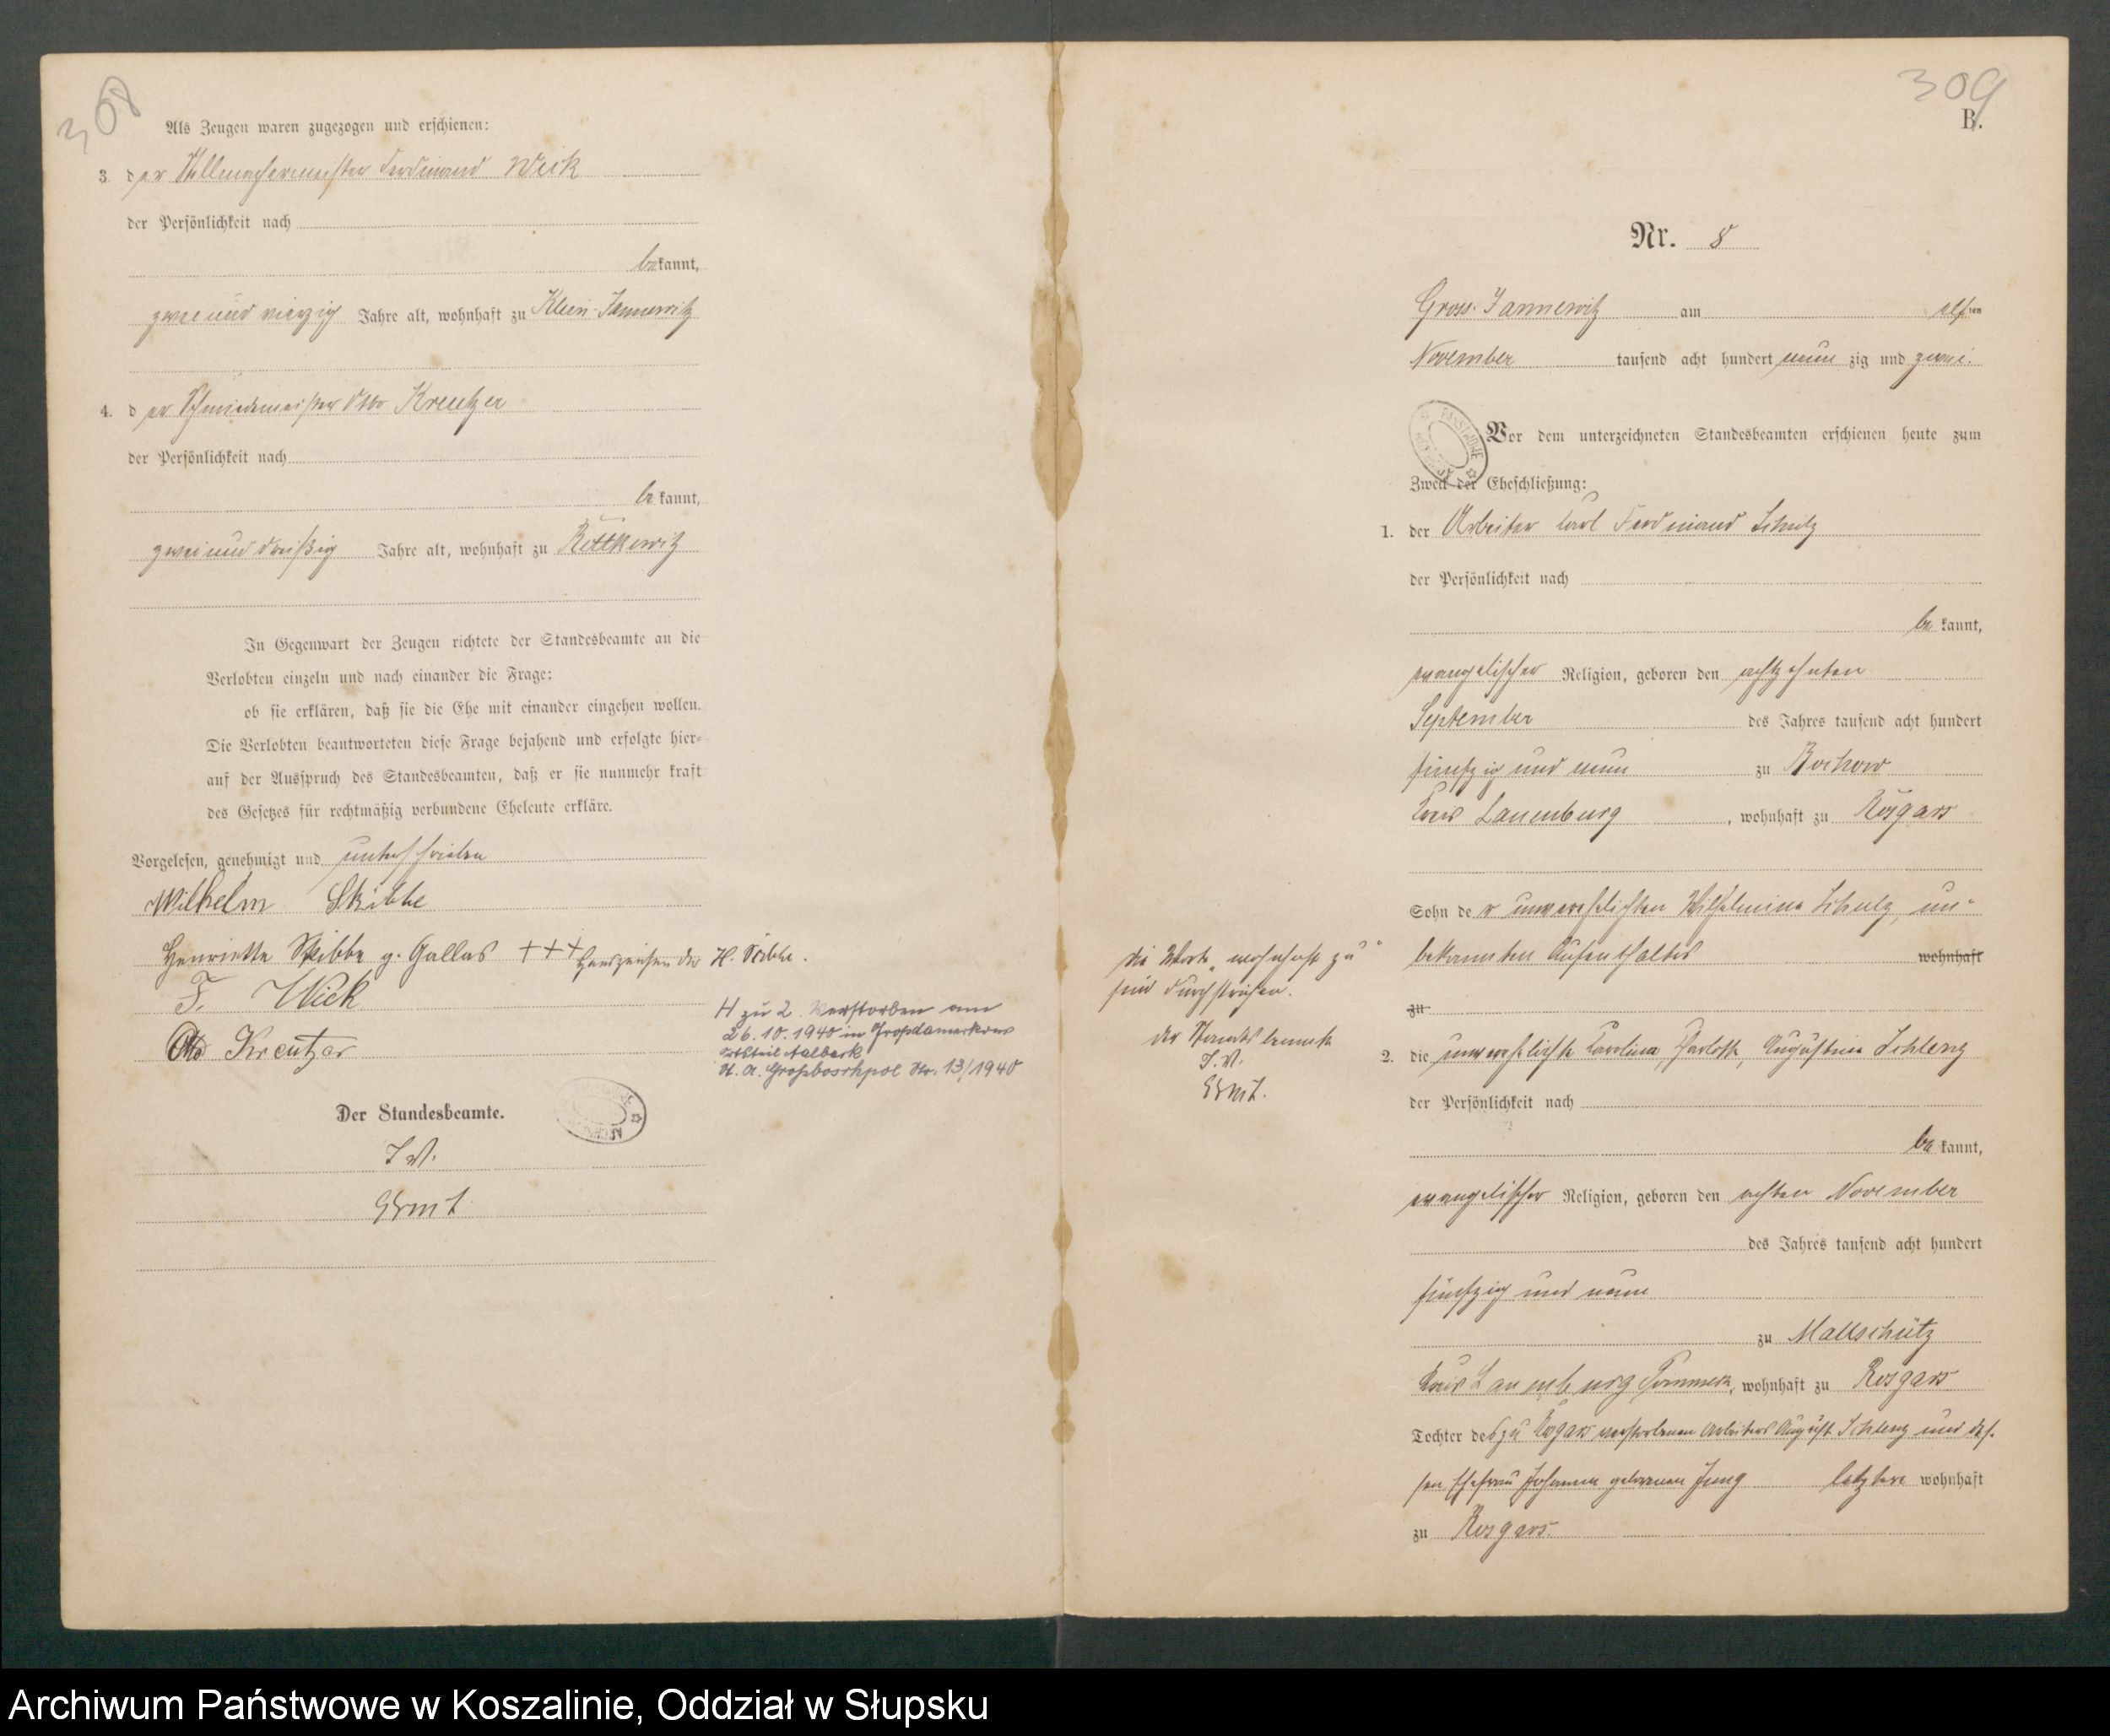 308
Als Zeugen waren zugezogen und erschienen:
3. der Stellmachermeister Ferdinand Wick
der Persönlichkeit nach
bekannt,
zwei und vierzig Jahre alt, wohnhaft zu Klein-Jannewitz
4. der Schmiedemeister Otto Kreutzer
der Persönlichkeit nach
bekannt,
zwei und dreißig Jahre alt, wohnhaft zu Rettkewitz
In Gegenwart der Zeugen richtete der Standesbeamte an die
Verlobten einzeln und nach einander die Frage:
ob sie erklären, daß sie die Ehe mit einander eingehen wollen.
Die Verlobten beantworteten diese Frage bejahend und erfolgte hier-
auf der Ausspruch des Standesbeamten, daß er sie nunmehr kraft
des Gesetzes für rechtmäßig verbundene Eheleute erkläre.
Vorgelesen, genehmigt und unterschrieben
Wilhelm Skibbe
Henriette Skibbe g. Gallas +++ Handzeichen der H. Skibbe.
F. Wick
Otto Kreutzer
H zu 2. Verstorben am
26.10.1940 in Großdamerkow
Ortsteil
St. A. Großboschpol Nr. 13/1940
Der Standesbeamte.
I. V.
309
B.
Nr. 8
Gross-Jannewitz am elften
November tausend acht hundert neunzig und zwei.
Vor dem unterzeichneten Standesbeamten erschienen heute zum
Zweck der Eheschließung:
1. der Arbeiter Carl Ferdinand Schulz
der Persönlichkeit nach
bekannt,
evangelischer Religion, geboren den achtzehnten
September des Jahres tausend acht hundert
fünfzig und neun zu Roschow
Kreis Lauenburg, wohnhaft zu Rosgars
Sohn der unverehelichten Wilhelmine Schulz, un-
bekannten Aufenthaltes wohnhaft
zu
die Worte „wohnhaft zu“
sind durchstrichen.
der Standesbeamte
I. V.
2. die unverehelichte Carolina, Charlotte, Augustine Schleng
der Persönlichkeit nach
bekannt,
evangelischer Religion, geboren den achten November
des Jahres tausend acht hundert
fünfzig und neun
zu Mallschütz
Kreis Lauenburg Pommern, wohnhaft zu Rosgars
Tochter des zu Rosgars verstorbenen Arbeiters August Schleng und des-
sen Ehefrau Johanne geborenen Jung letztere wohnhaft
zu Rosgars
Archiwum Państwowe w Koszalinie, Oddział w Słupsku